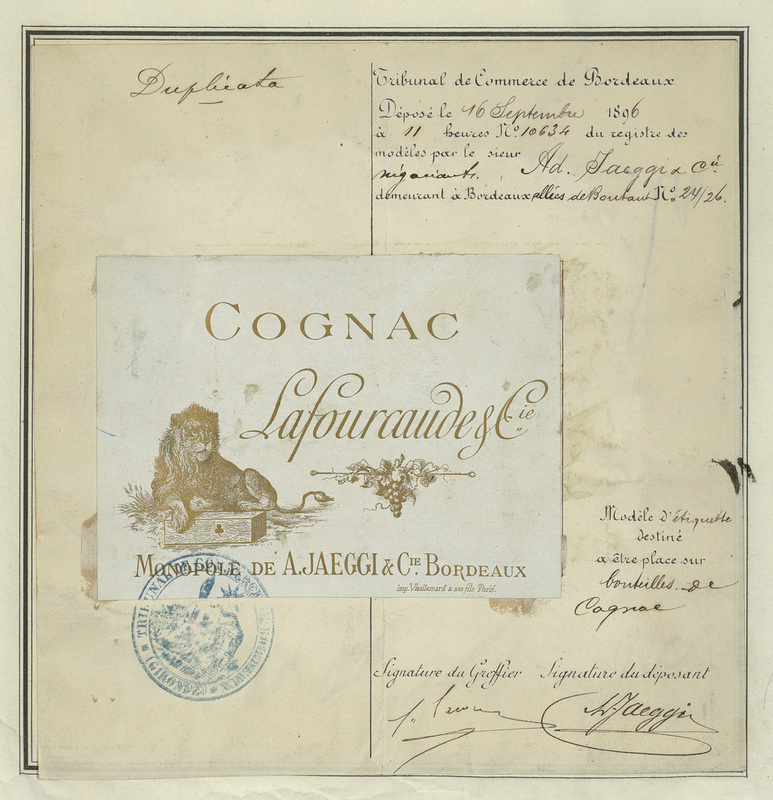 Duplicata
Tribunal de Commerce de Bordeaux
Déposé le 16 Septembre 1896
à 11 heures No. 10634 du registre des
modèles par le sieur Ad. Jaeggi & Cie
négociants.
demeurant à Bordeaux allées de Boutaut No. 24/26.
COGNAC
Lafourcaude & Cie
MONOPOLE DE A. JAEGGI & CIE. BORDEAUX
Imp. Vieillemard & ses fils Paris.
Modèle d'étiquette
destiné
a être place sur
bouteilles de
Cognac
TRIBUNAL DE COMMERCE
(GIRONDE)
Signature du Greffier Signature du déposant
Jaeggi